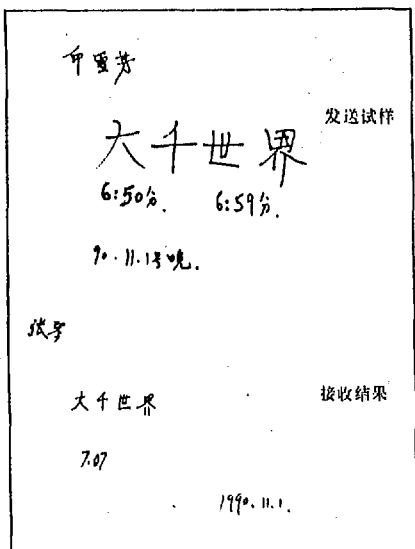 发送试样
大千世界
6:50分. 6:59分.
90.11.1号晚.
接收结果
大千世界
7.07
1990.11.1.